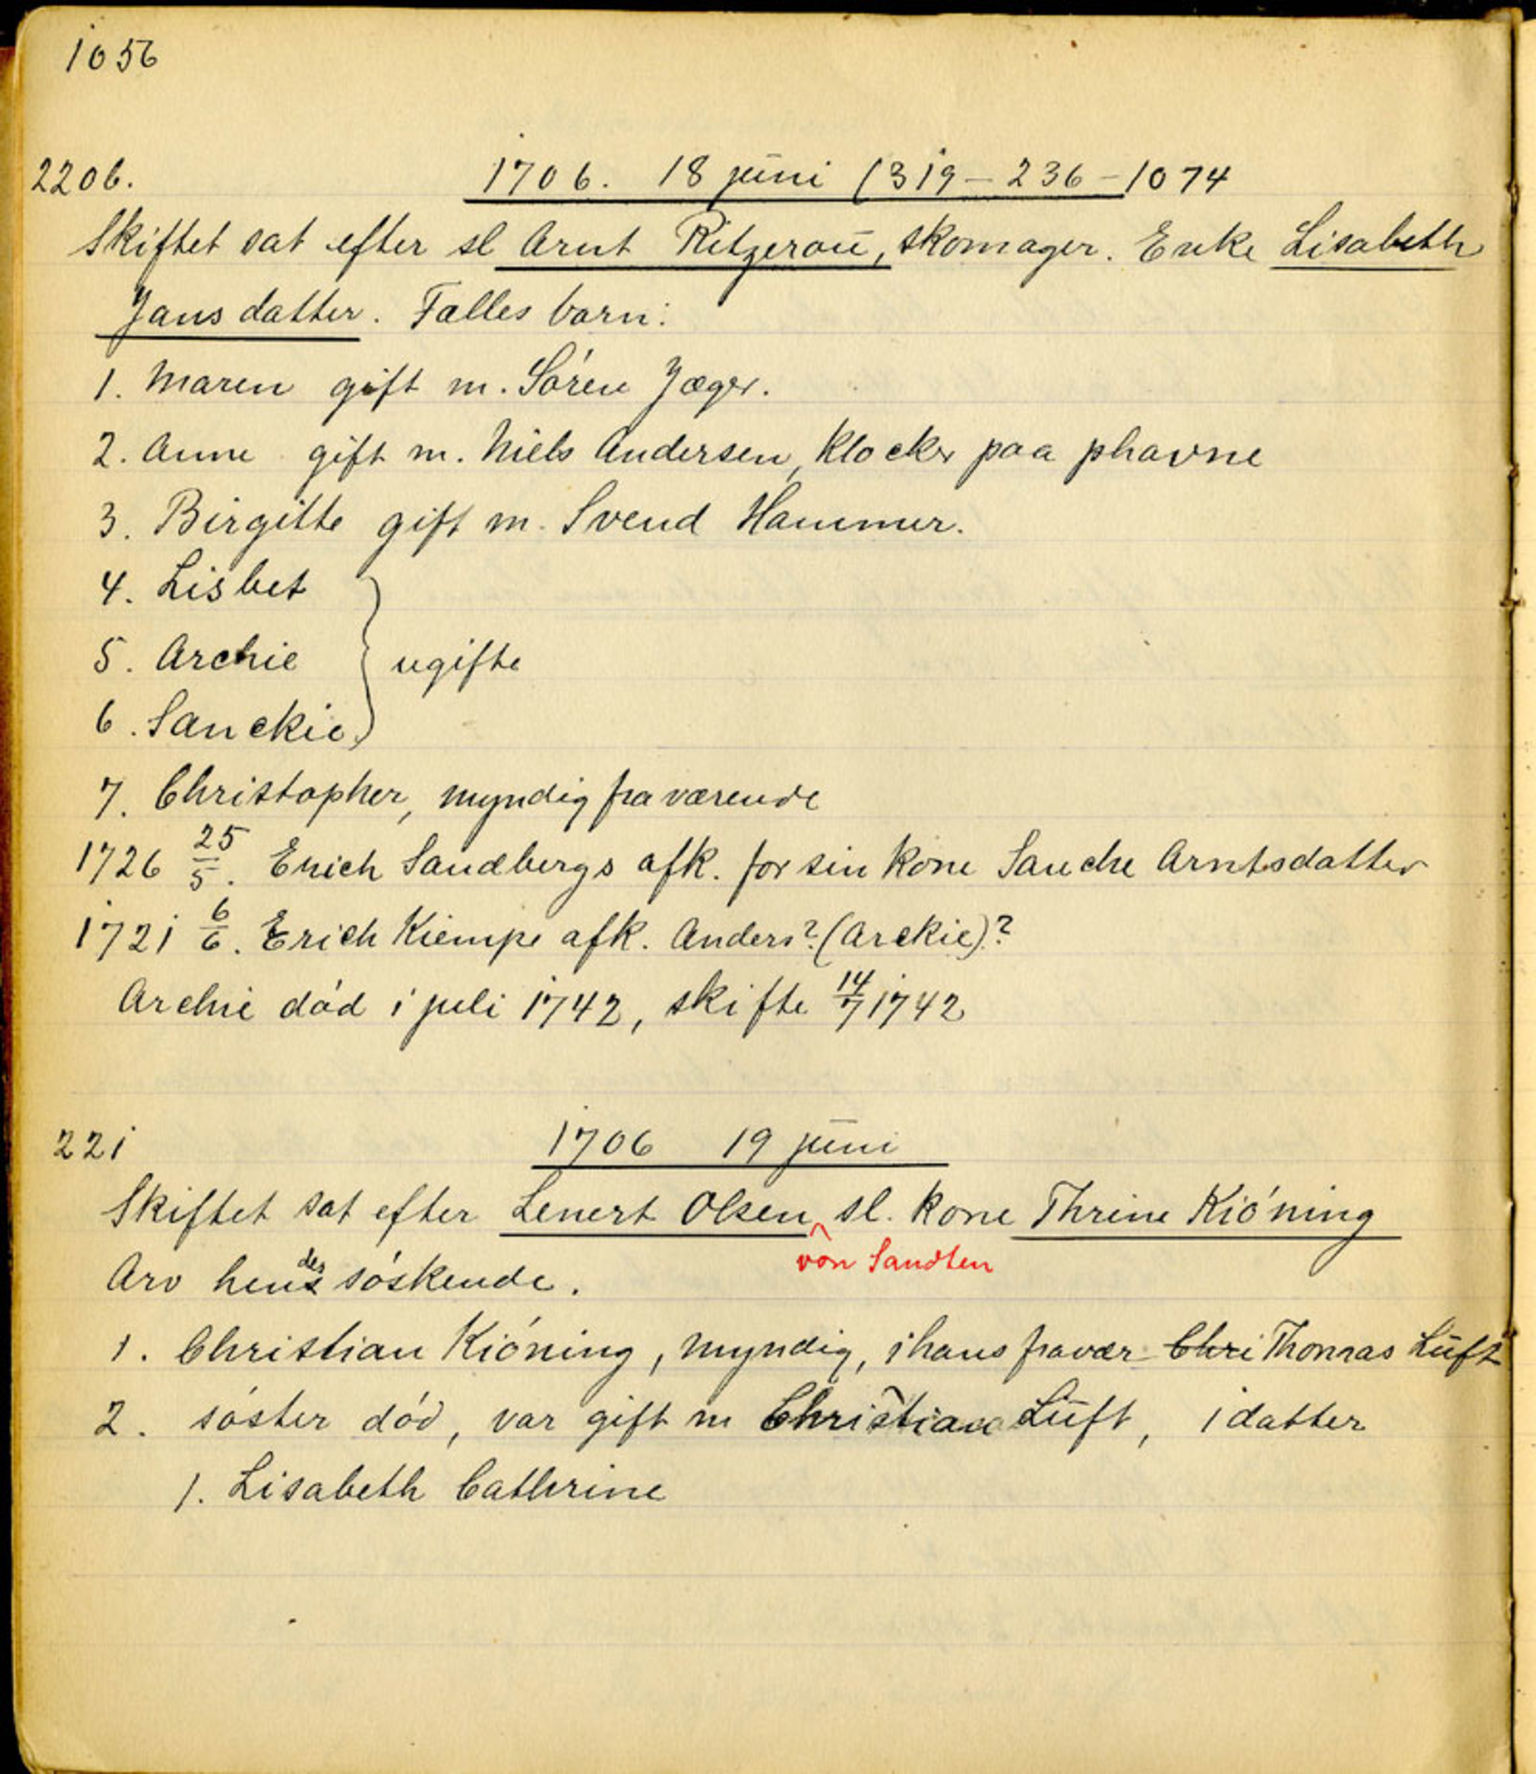 1056
220b. 1706. 18 juni (319 - 236 - 1074
Skiftet sat efter sl Arnt Ritzerou, skomager. Enke Lisabeth
Jansdatter. Fælles barn:
1. Maren gift m. Sören Jæger.
2. Anne gift m. Niels Andersen, Klocker paa phavne
3. Birgitte gift m. Svend Hammer.
4. Lisbet
5. Archie } ugifte
6. Sanckie
7. Christopher, myndig fraværende
1726 25/5. Erich Sandbergs afk. for sin kone Sanche Arntsdatter
1721 6/6. Erich Kiempe afk. Anders? (Arckie)?
Archie död i juli 1742, skifte 14/7 1742
221 1706 19 juni
Skiftet sat efter Lenert Olsen sl. kone Thrine Kiöning
von Sandten
Arv hendes söskende.
1. Christian Kiöning, myndig, i hans fravær Chri Thomas Luft
2. söster död, var gift m Christian Luft, 1 datter
1. Lisabeth Cathrine